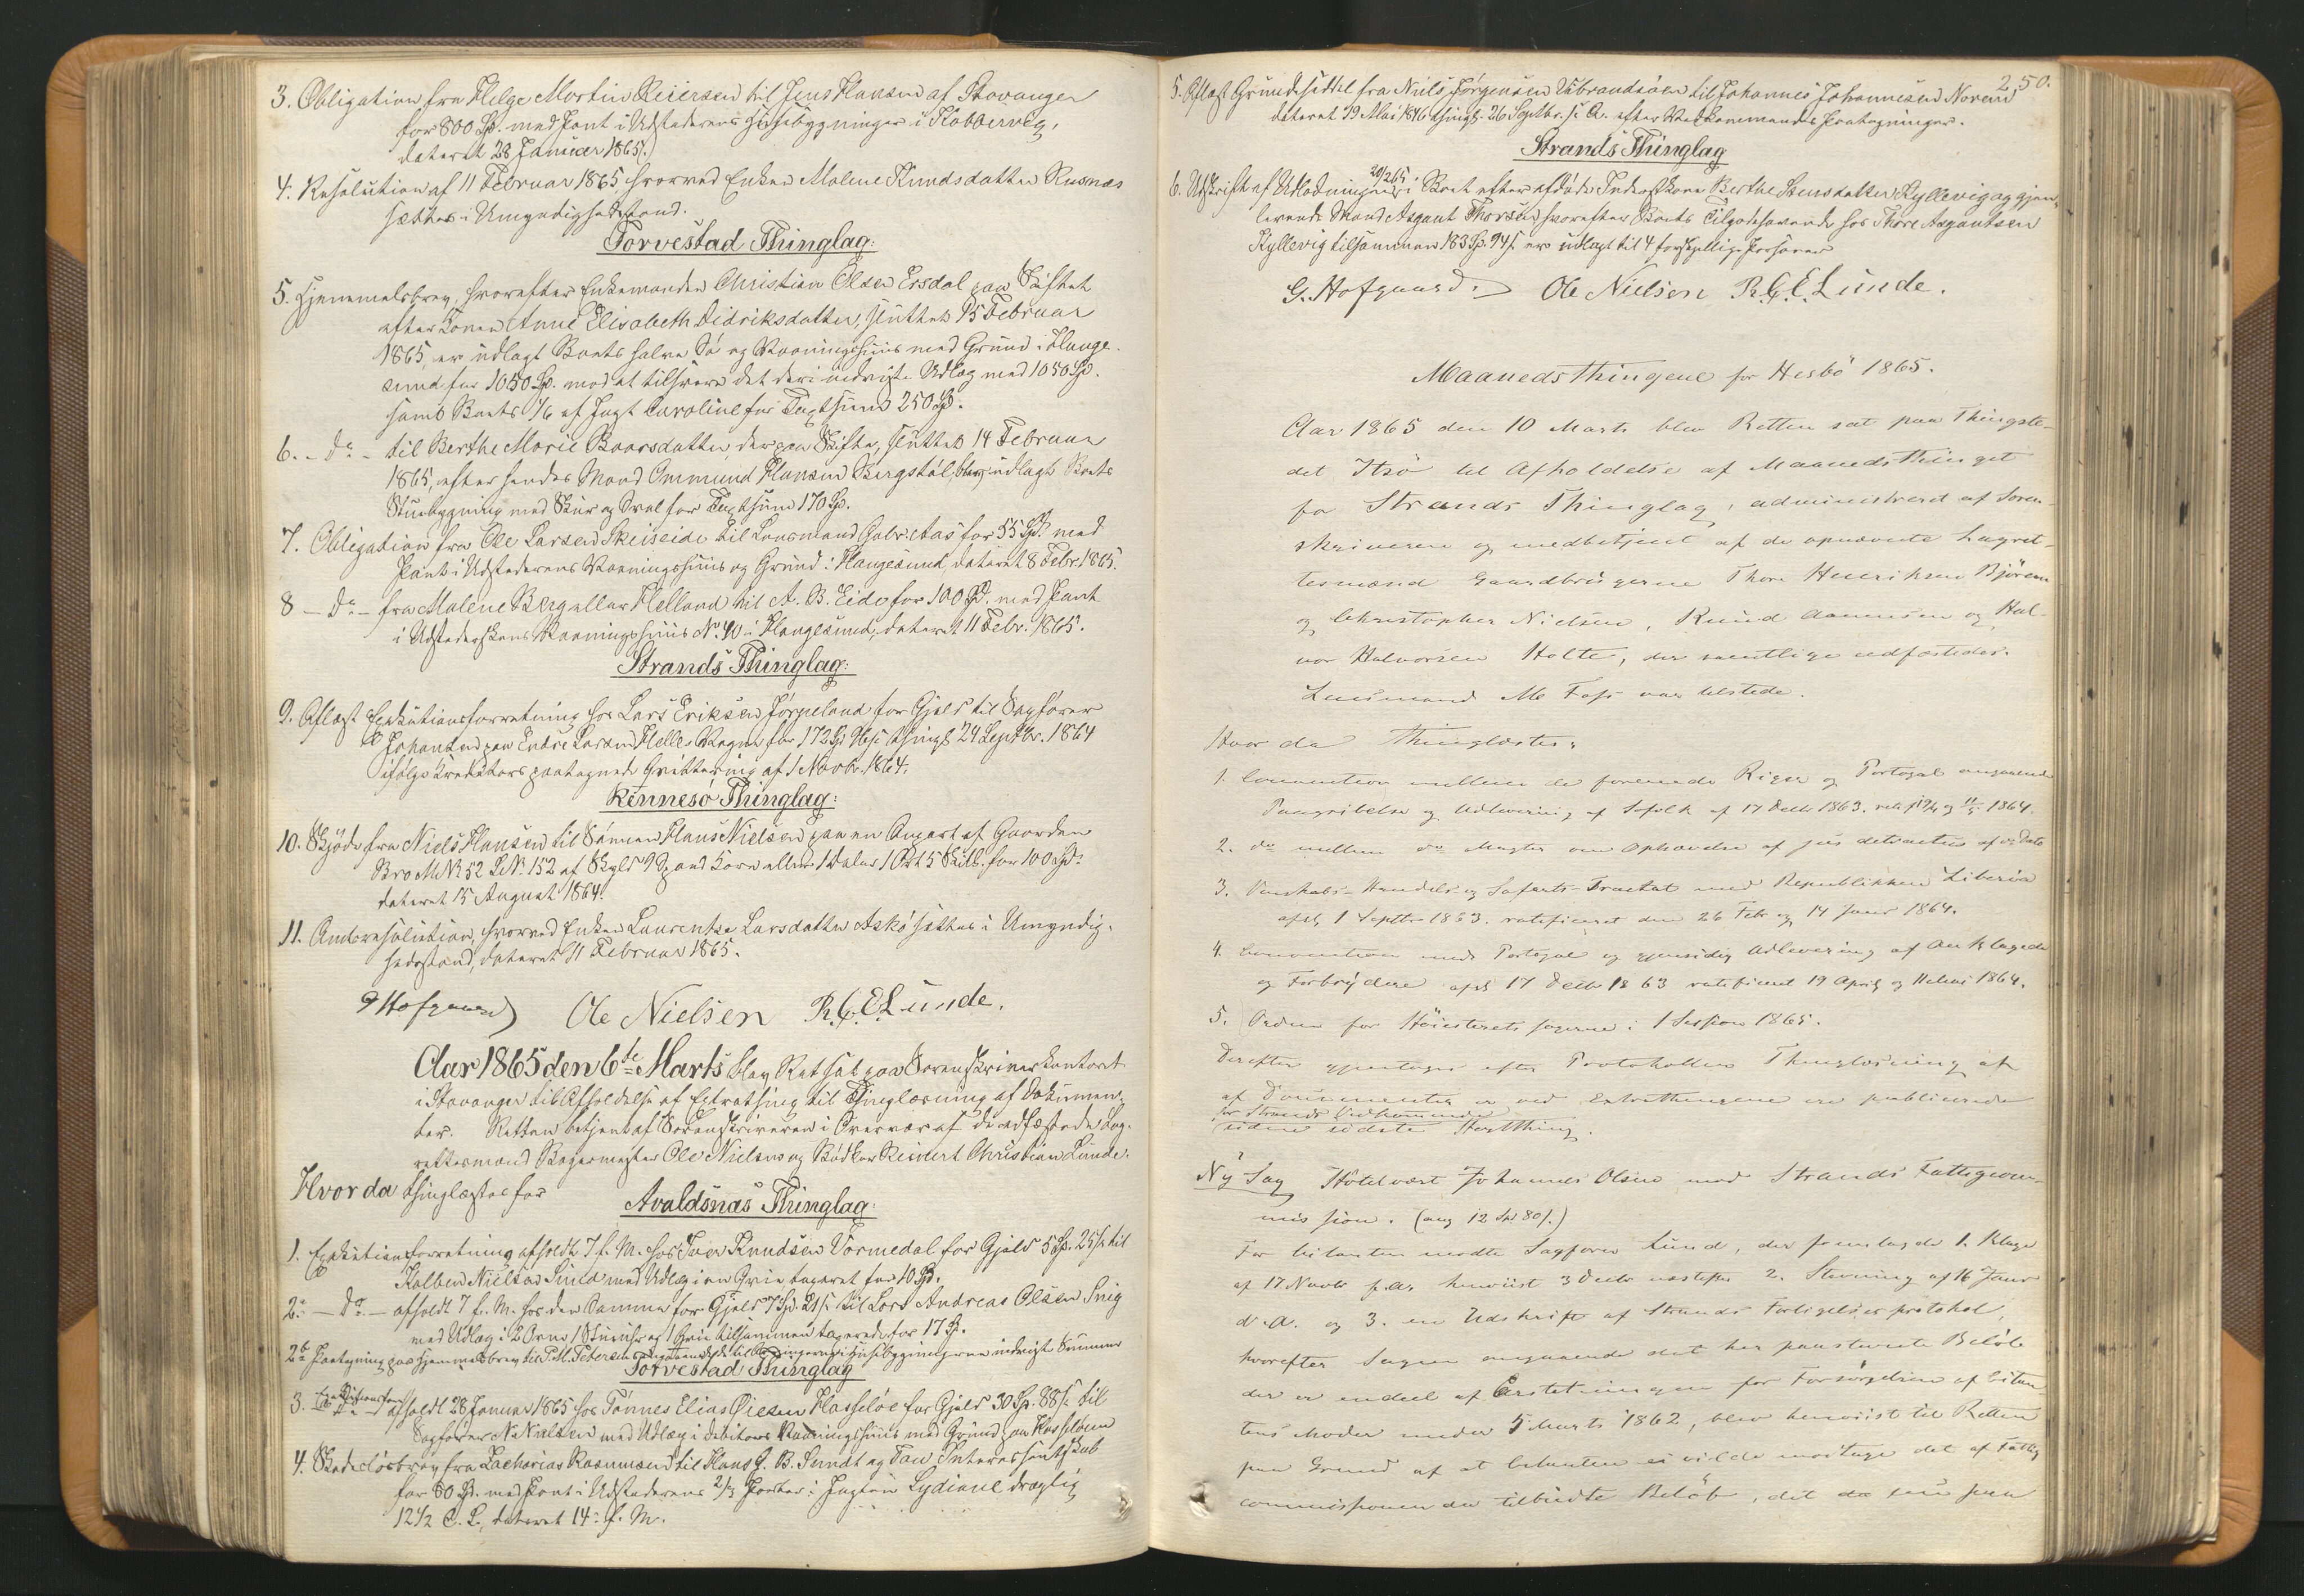 3. Obligation fra Helge Martin Reiersen til Jens Hansen af Stavanger
for 800 Spd. med Pant i Udstederens Huusbygninger i Kobbervig,
dateret 28 Januar 1865.
4. Resolution af 11 Februar 1865 hvorved Enken Malene Knudsdatter Rusnæs
sættes i Umyndighedsstand.
Torvestad Thinglag:
5. Hjemmelsbrev, hvorefter Enkemanden Christian Olsen Erdal paa Skiftet
efter Konen Anne Elisabeth Didriksdatter, sluttet 15 Februar
1865, er udlagt Boets halve Sø og Vaaningshuus med Grund i Hauge-
sund for 1050 Spd. mod at tilsvare det deri indrgt. Udlæg med 1050 Spd.
samt Boets 1/6 af Jagt Caroline for Taxtsum 250 Spd.
6. - Do - til Berthe Marie Baarsdatter, der paa Skifte, sluttet 14 Februar
1865, efter hendes Mand Ommund Hansen Bergstøl, blev udlagt Boets
Stuebygning med Skuur og Sval for Taxtsum 170 Spd.
7. Obligation fra Ole Larsen Skeiseide til Lensmand Gabr. Aas for 55 Spd. med
Pant i Udstederens Vaaningshuus og Grund i Haugesund, dateret 8 Febr. 1865.
8 - Do - fra Malene Berg eller Helland til A. B. Eide for 100 Spd. med Pant
i Udstederskens Vaaningshuus No. 40 i Haugesund, dateret 11 Febr. 1865.
Strands Thinglag:
9. Aflæst Exekutionsforretning hos Lars Eriksen Jørpeland for Gjæld til Sagfører
Johansen paa Endre Larsen Helle Vegne for 172 Spd. thingl. 24 Septbr. 1864
ifølge Kreditors paategnede Qvittering af 1 Novbr. 1864.
Rennesø Thinglag:
10. Skjøde fra Niels Hansen til Sønnen Hans Nielsen paa en Anpart af Gaarden
Bro M. No. 52 L. No. 152 af Skyld 9 Spand Korn eller 1 Daler 1 Ort 5 Skill. for 100 Spd.
dateret 15 August 1864.
11. Amtsresolution, hvorved Enken Laurentse Larsdatter Askø sættes i Umyndig-
hedsstand, dateret 11 Februar 1865.
G Hofgaard Ole Nielsen R.C.E. Lunde.
Aar 1865 den 6te Marts blev Ret sat paa Sorenskriverkontoret
i Stavanger til Afholdelse af Extrathing til Thinglæsning af Dokumen-
ter. Retten betjent af Sorenskriveren i Overvær af de edfæstede Lag-
rettesmænd Bagermester Ole Nielsen og Bødker Reinert Christian Lunde.
Hvor da thinglæstes for
Avaldsnæs Thinglag:
1. Exekutionsforretning afholdt 7 f. M. hos Iver Knudsen Vormedal for Gjæld 5 Spd. 25 s. til
Kolben Nielsen Sund med Udlæg i en Qvie taxeret for 10 Spd.
2a - Do - afholdt 7 f. M. hos den Samme for Gjæld 7 Spd. 21 s. til Lars Andreas Olsen Snig
med Udlæg i 2 Qvier 1 Stueuhr og 1 Qvie tilsammen taxerede for 17 Spd.
2b Paategning paa Hjemmelsbrev til P. M. Petersen
Torvestad Thinglag
3. Exekutionsforr. afholdt 28 Januar 1865 hos Tønnes Elias Olsen Hasseløe for Gjæld 30 Spd. 88 s. til
Sagfører N. Nielsen med Udlæg i Debitors Vaaningshuus med Grund paa Hasseløen
4. Skadesløsbrev fra Zacharias Rasmussen til Hans J. B. Sundt og Tau Interessentskab
for 80 Spd. med Pant i Udstederens 2/3 Parter i Jagten Lydiane drægtig
12 1/2 C. L., dateret 14 f. M.
250.
5. Aflæst Grundseddel fra Niels Jørgensen Udbrandsøen til Johannes Johannesen Norem
dateret 19 Mai 1846 thingl. 26 Septbr. s. A. efter Vedkommendes Paategninger.
Strands Thinglag
20/2 65.
6. Udskrift af Udlodningen i Boet efter afdøde Inderstkone Berthe Stensdatter Kyllevig og gjen-
levende Mand Asgaut Thorsen hvorefter Boets Tilgodehavende hos Thore Asgautsen
Kyllevig tilsammen 183 Spd. 94 s. er udlagt til 4 forskjellige Personer
G. Hofgaard. Ole Nielsen R.C.E. Lunde.
Maanedsthingene for Hesbö 1865.
Aar 1865 den 10 Marts blev Retten sat paa Thingste-
det Itsö til Afholdelse af Maanedsthinget
for Strands Thinglag, administreret af Soren-
skriveren og medbetjent af de opnævnte Lagret-
tesmænd Gaardbrugerne Thore Henriksen Björem
og Christopher Nielsen, Knud Aanensen og Hal-
vor Halvorsen Holte, der samtlige edfæstedes.
Lensmand M. Foss var tilstede.
Hvor da Thinglæstes:
1. Convention mellem de forenede Riger og Portugal angaaende
Paagribelse og Udlevering af Søfolk af 17 Decbr 1863. ratif 19/4 og 11/5 1864.
2. do mellem do Magter om Ophævelse af jus detractus af s. Dato
3. Venskabs- Handels og Søfarts-Tractat med Republikken Liberia
afsl. 1 Septbr 1863. ratificeret den 26 Febr og 14 Juni 1864.
4. Convention med Portugal og gjensidig Udlevering af Anklagede
og Forbrydere afsl 17 Decbr 1863 ratificeret 19 April og 11 Mai 1864.
5. Orden for Høiesterets sagerne i 1 Session 1865.
Derefter gjentoges efter Protokollen Thinglæsning af
af Documenter er ved Extrathingene ere publicerede
for Strands Vedkommende
siden sidste Høstthing.
Ny Sag Hotelvært Johannes Olsen mod Strands Fattigcom-
mission. (ang 12 Spd 80 s.)
For Citanten mødte Sagfører Lund, der fremlagde 1. Klage
af 17 Novbr f. A. henviist 3 Decbr næstefter 2. Stevning af 16 Januar
d. A. og 3. en Udskrift af Strands Forligelsesprotokol,
hvorefter Sagen angaaende det her paastevnte Beløb
der er endeel af Erstatningen for Forsørgelsen af Citan
tens Moder under 5 Marts 1862, blev henviist til Retten
paa Grund af at Citanten ei vilde modtage det af Fattig
commissionen da tilbudte Beløb, det da